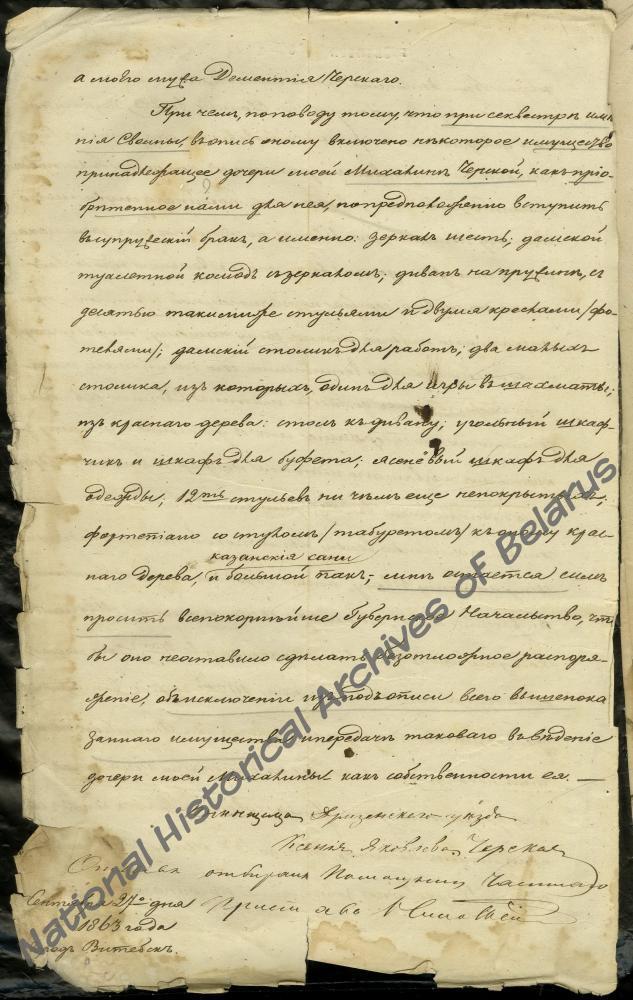 а моего мужа Дементія Черскаго.
При чемъ, по поводу тому, что при секвестрѣ имѣ-
нія Свольны, въ опись оному включено нѣкоторое имущество
принадлежащее дочери моей Михалинѣ Черской, какъ прiо-
брѣтенное нами для нея, по предположенію вступить
въ супружескій бракъ, а именно: зеркалъ шесть; дамской
туалетной комодъ съ зеркаломъ; диванъ на пружинѣ, съ
десятью такими же стульями и двумя креслами /фо-
телями/; дамскій столикъ для работъ; два малыхъ
столика, изъ которыхъ, одинъ для игры въ шахматы;
изъ краснаго дерева: столъ къ дивану; угольный шкаф-
чикъ и шкафъ для буфета; ясенёвый шкафъ для
одежды, 12ть стульевъ ни чѣмъ еще непокрытыхъ,
фортепіано со стуломъ /табуретомъ/ къ оному крас-
казанскія сани
наго дерева, и большой лакъ; мнѣ остается симъ
просить всепокорнѣйше Губернское Начальство, что
бы оно неоставило сдѣлать безотложное распоря-
женіе, объ исключеніи изъ подъ описи всего вышепока
заннаго имущества и передачѣ таковаго въ вѣденіе
дочери моей Михалины какъ собственности ея. —
Дризенскаго уѣзда
Ксенія Яковлева Черская
отбиралъ Помощникъ Частнаго
Пристава
Сентября 27го дня
1863 года
город Витебскъ.
National Historical Archives of Belarus